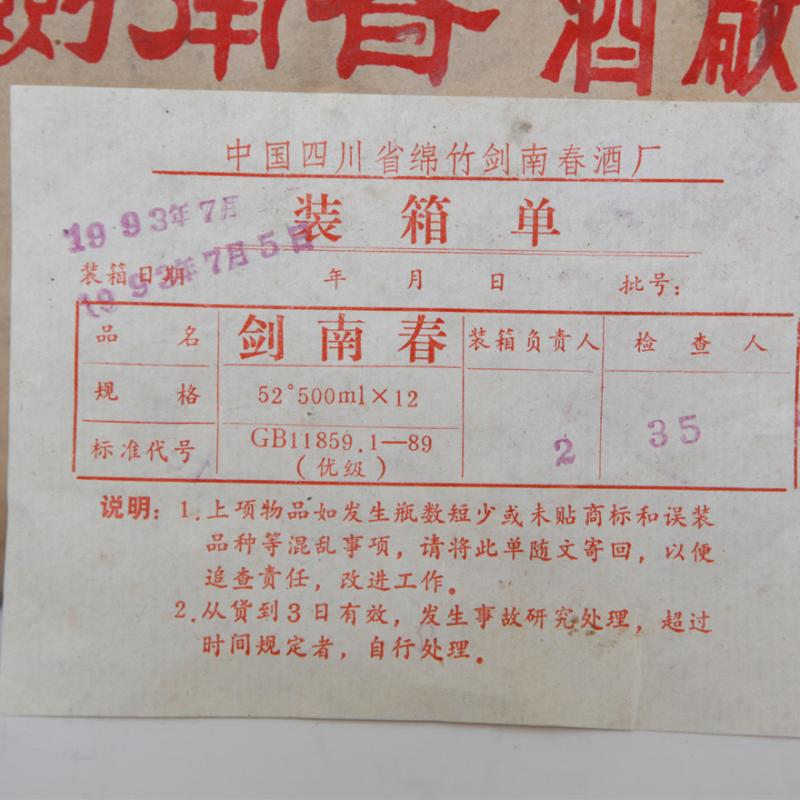 剑南春酒厰
中国四川省绵竹剑南春酒厂
装箱单
1993年7月
1993年7月5日
装箱日期 年 月 日 批号:
品名 剑南春 装箱负责人 检查人
规格 52°500ml×12
标准代号 GB11859.1—89 2 35
(优级)
说明:1.上项物品如发生瓶数短少或未贴商标和误装
品种等混乱事项,请将此单随文寄回,以便
追查责任,改进工作。
2.从货到3日有效,发生事故研究处理,超过
时间规定者,自行处理。